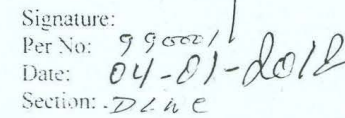 Signature:
Per No: 990001
Date: 04-01-2012
Section: DLWC